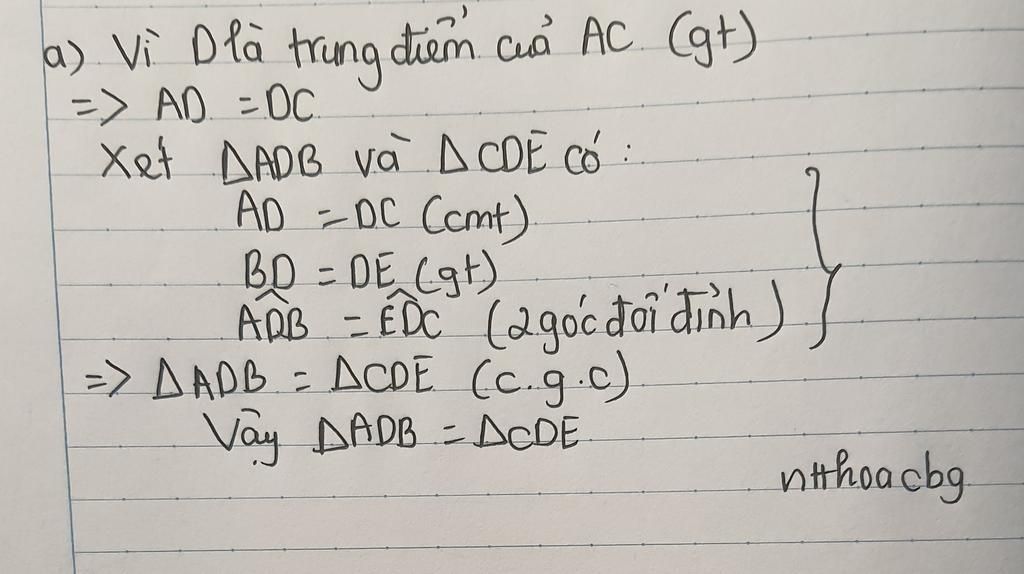 a) Vì D là trung điểm của AC (gt)
=> AD = DC
Xét ΔADB và ΔCDE có:
AD = DC (cmt)
BD = DE (gt)
\widehat{ADB} = \widehat{EDC} (2 góc đối đỉnh)
=> ΔADB = ΔCDE (c.g.c)
Vậy ΔADB = ΔCDE
ntthoacbg